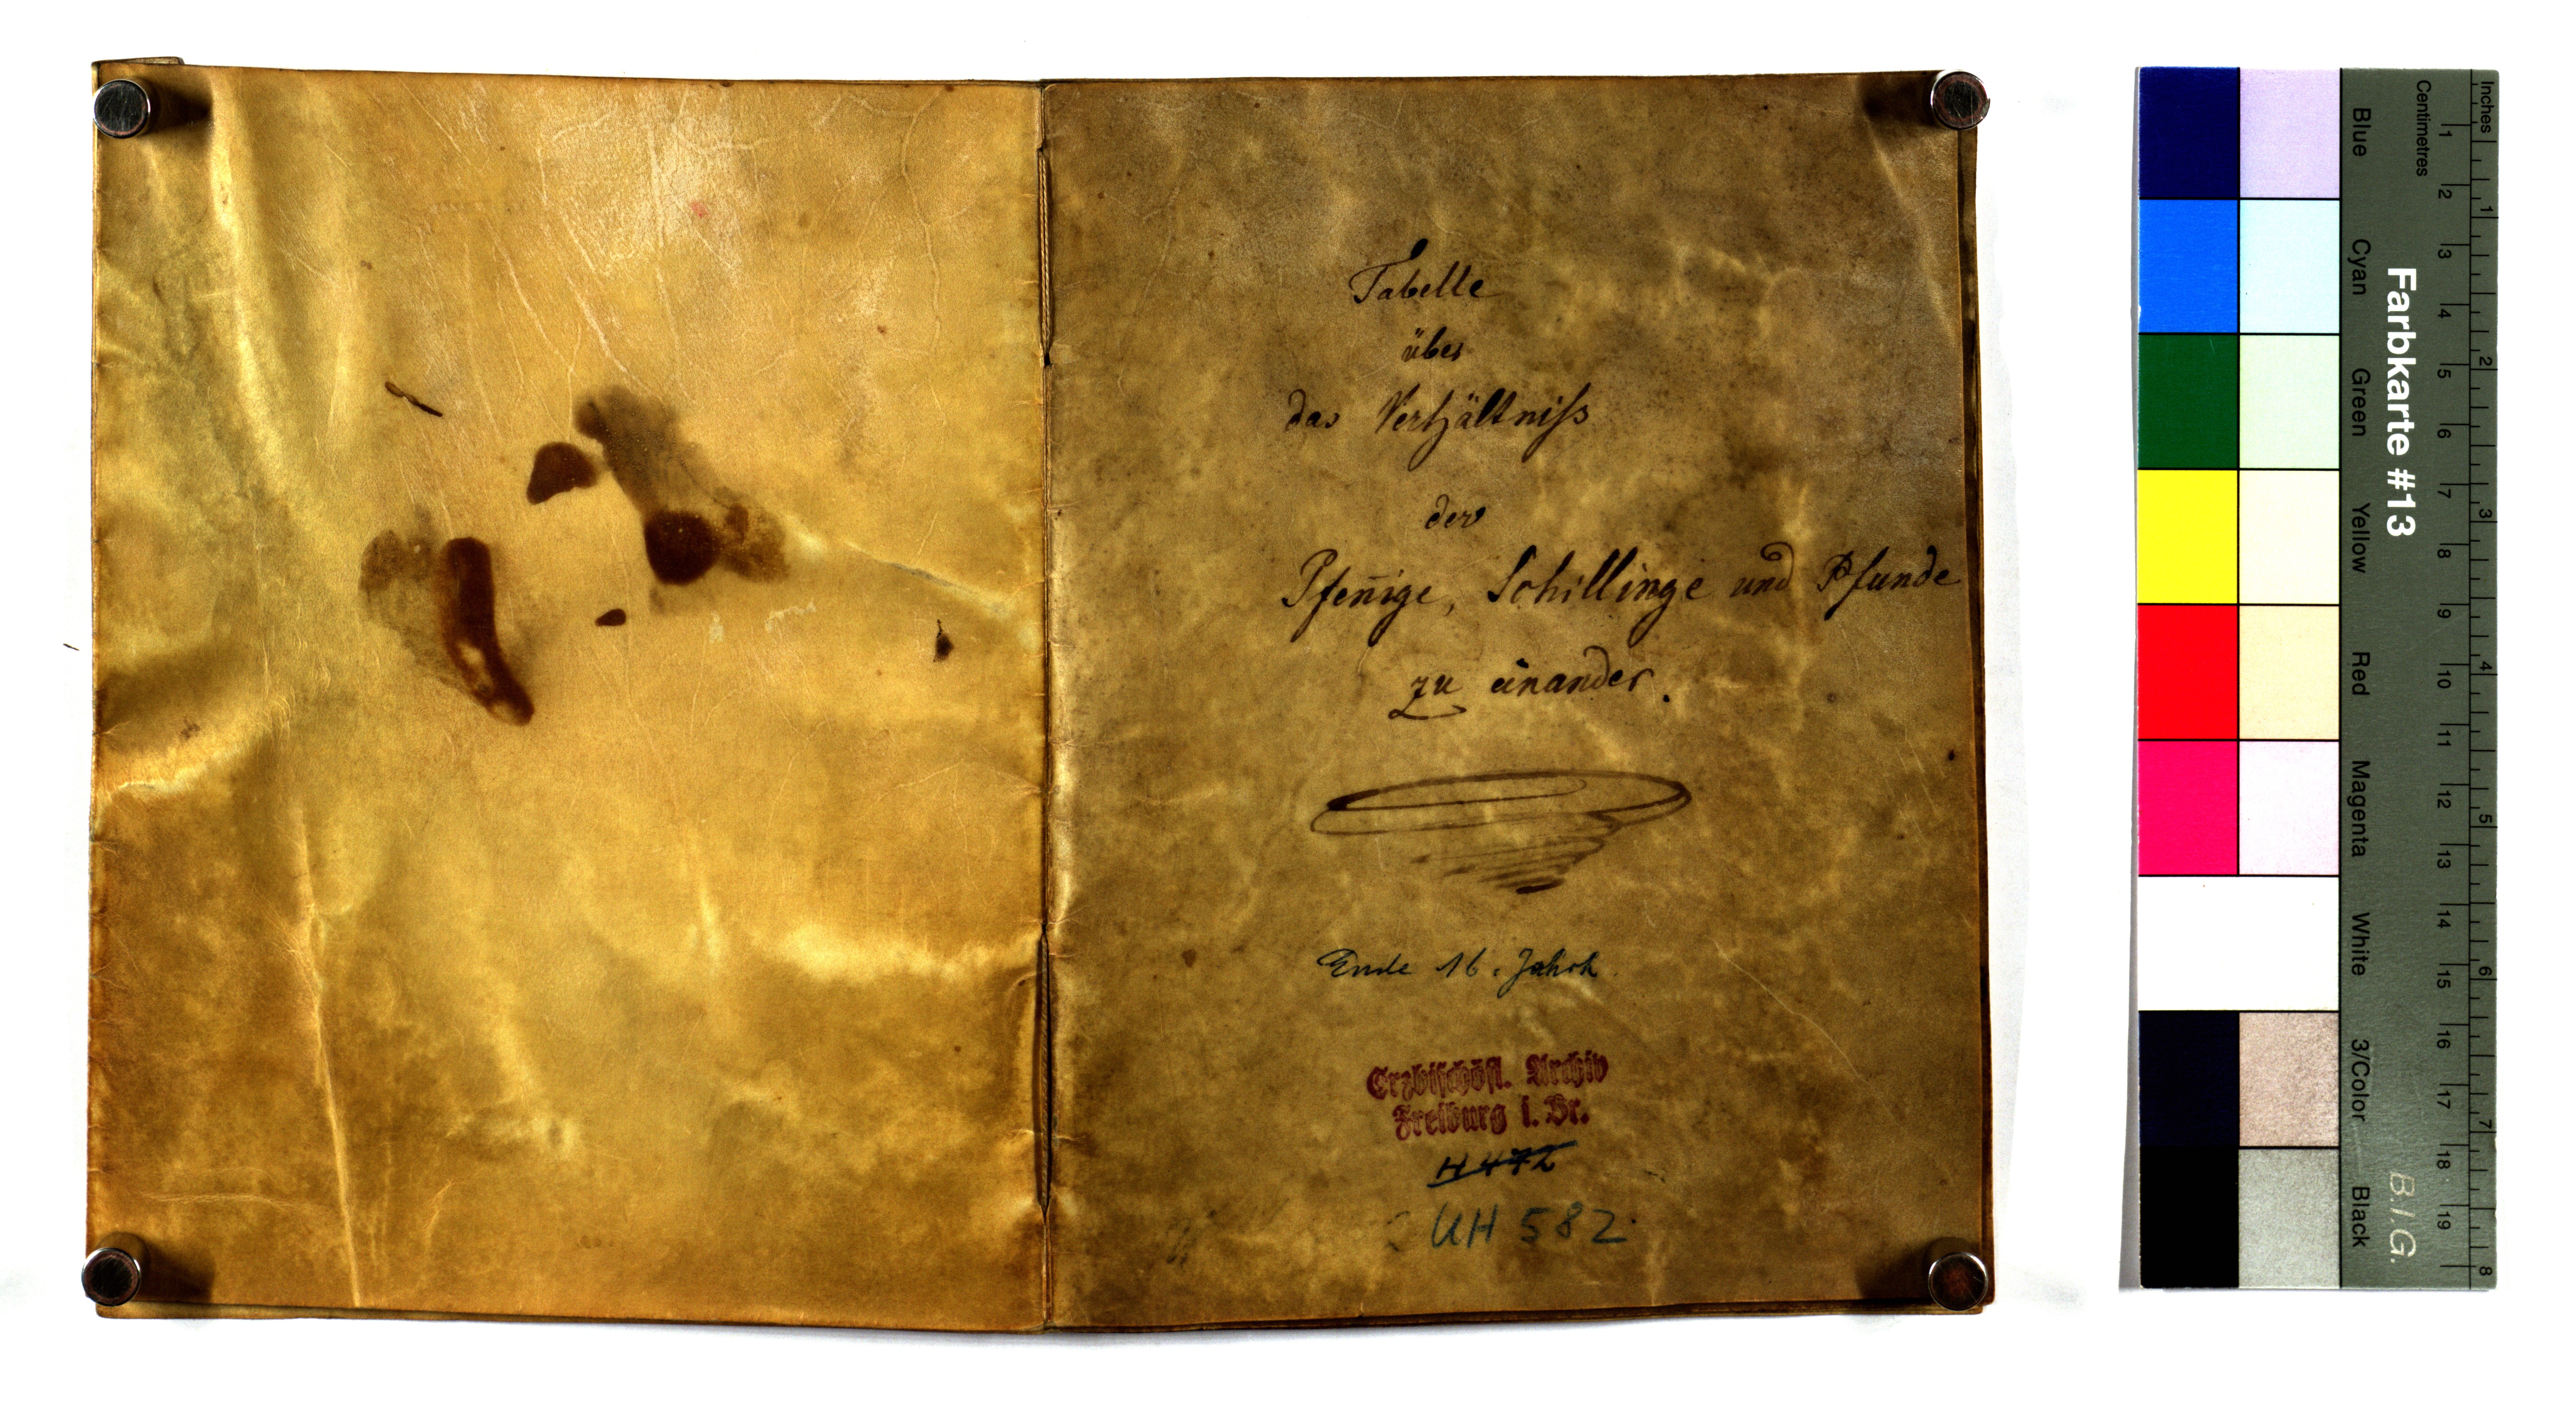 Tabelle
über
das Verhältniſs
der
Pfen̄ige, Schillinge und Pfunde
zu einander.
Ende 16. Jahrh.
Erzbischöfl. Archiv
Freiburg i. Br.
H 472
UH 582
Inches
Centimetres
1 2 3 4 5 6 7 8
1 2 3 4 5 6 7 8 9 10 11 12 13 14 15 16 17 18 19
Farbkarte #13
B.I.G.
Blue Cyan Green Yellow Red Magenta White 3/Color Black